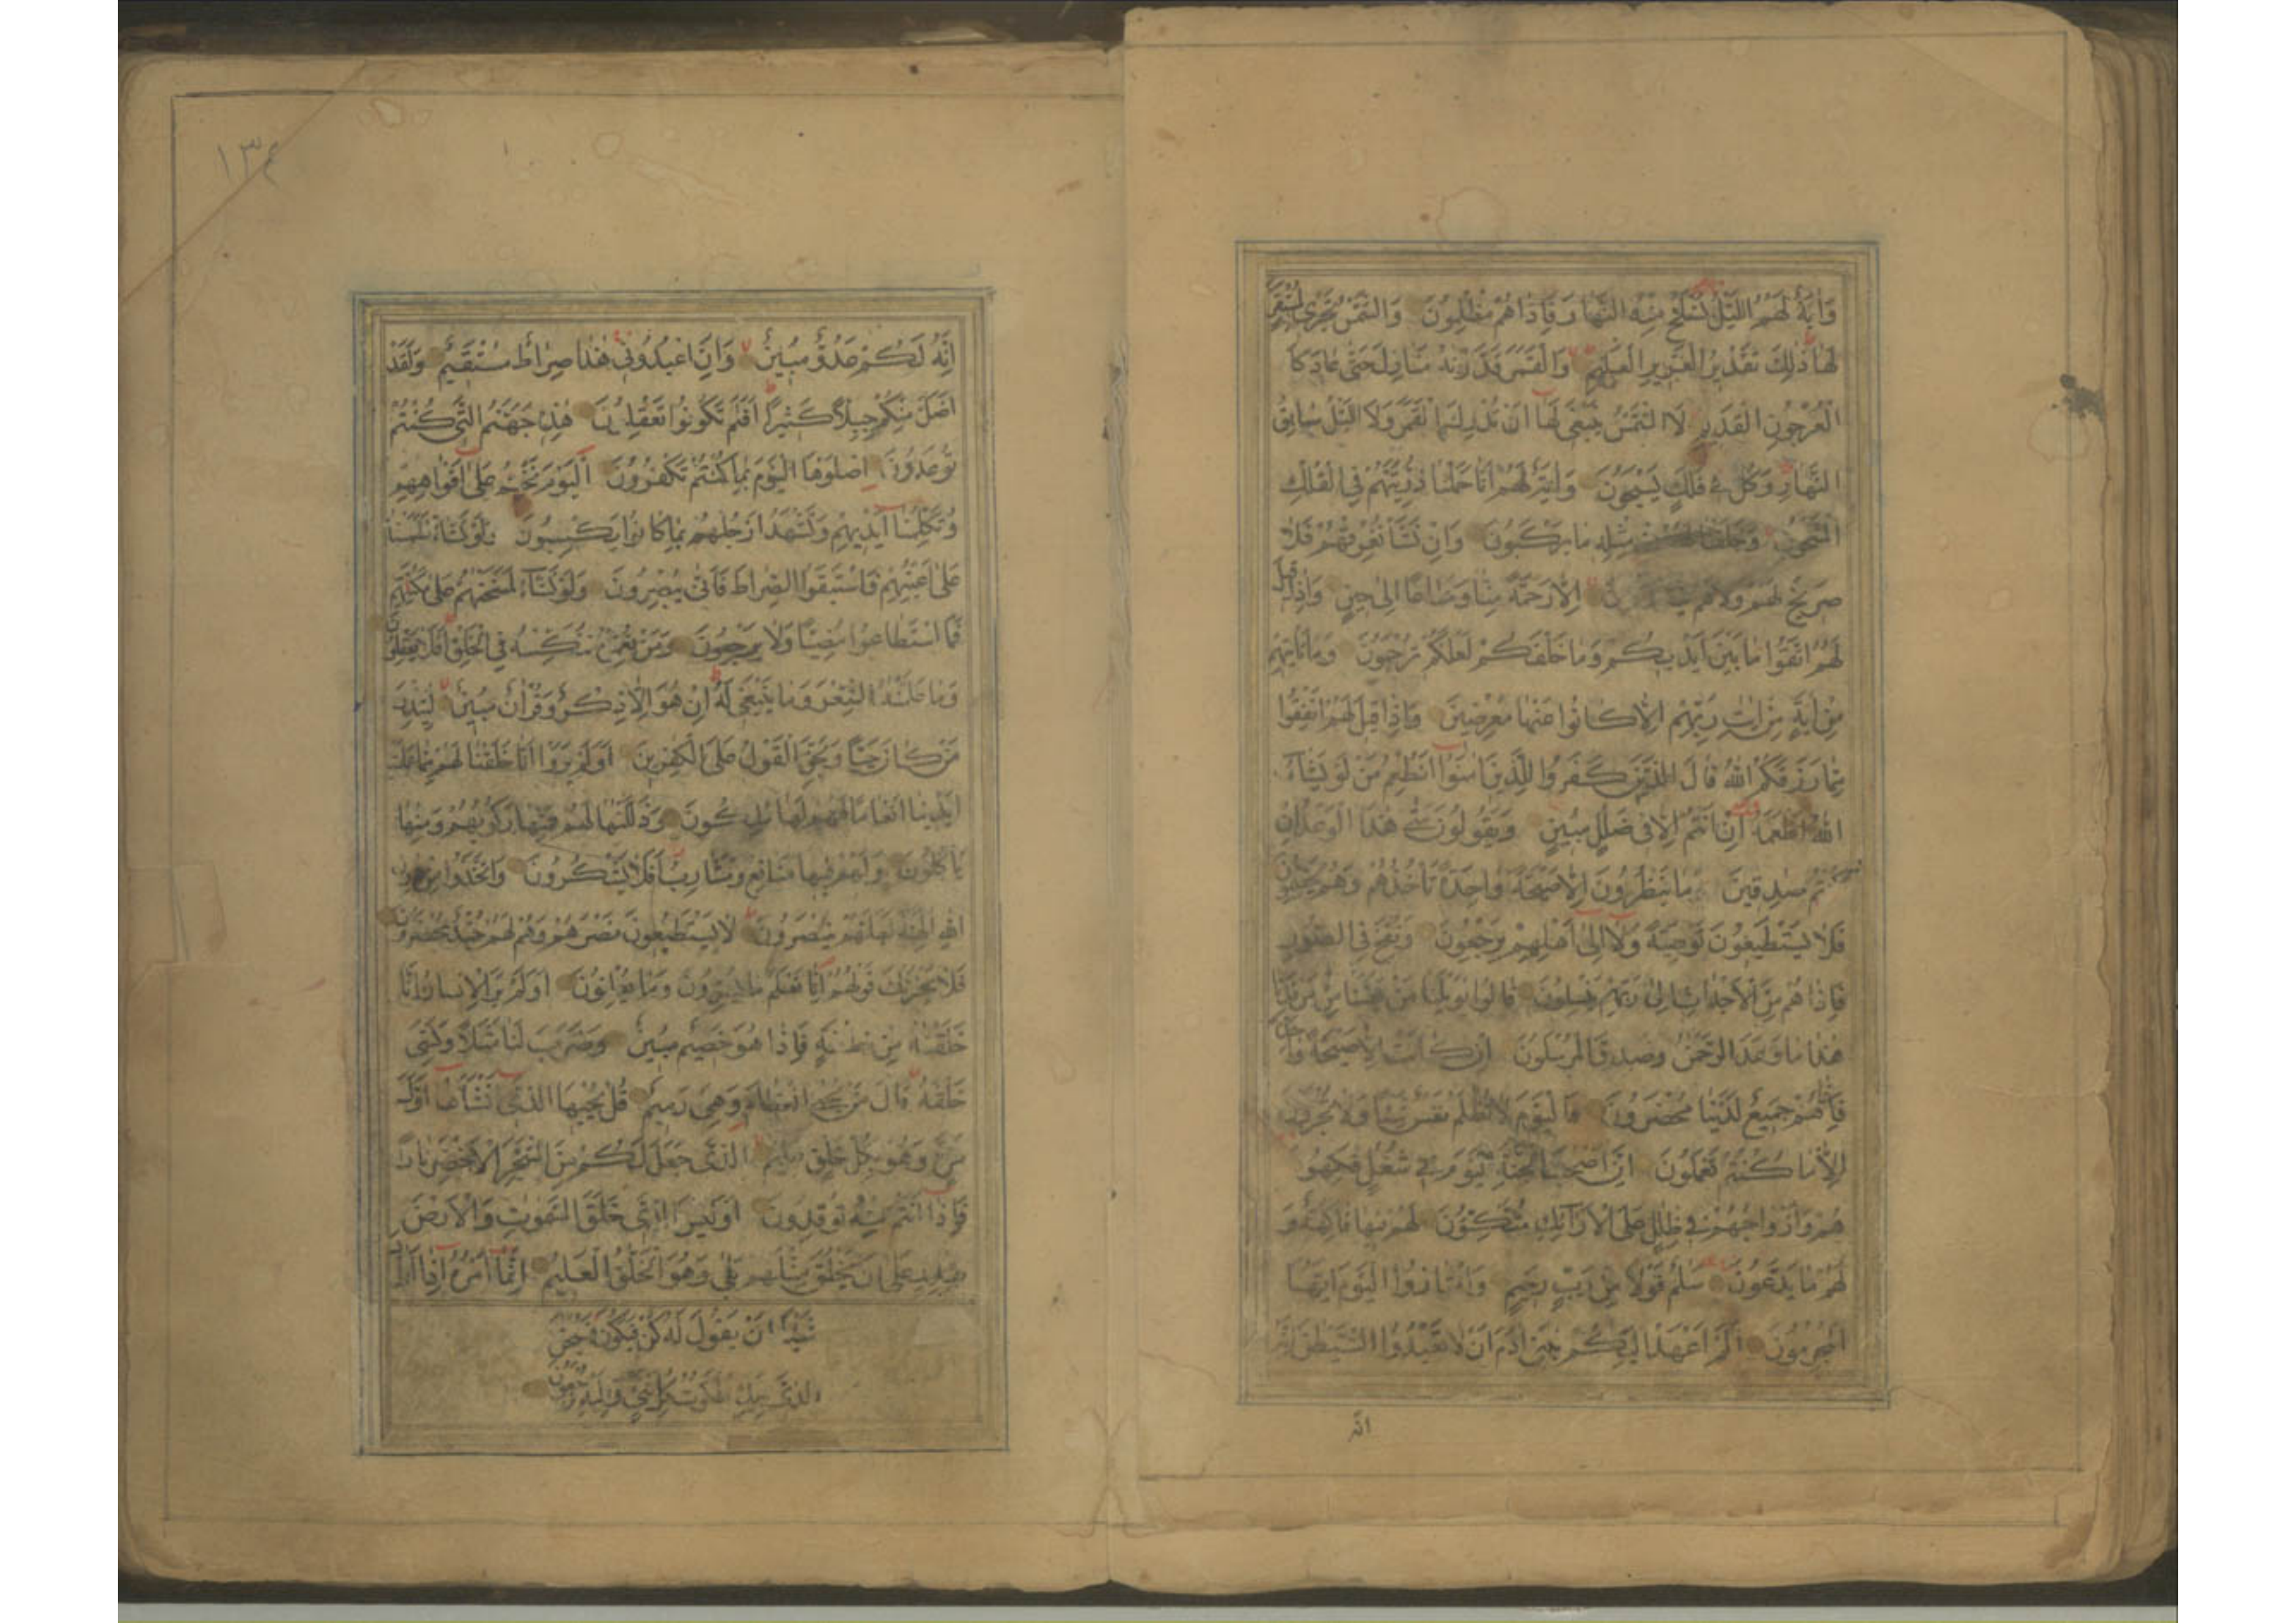 وَاٰيَةٌ لَهُمُ اللَّيْلُ نَسْلَخُ مِنْهُ النَّهَارَ فَاِذَا هُمْ مُظْلِمُونَ وَالشَّمْسُ تَجْرِى لِمُسْتَقَرٍّ
لَهَا ذٰلِكَ تَقْدِيرُ الْعَزِيزِ الْعَلِيمِ وَالْقَمَرَ قَدَّرْنٰهُ مَنَازِلَ حَتّٰى عَادَ كَا
لْعُرْجُونِ الْقَدِيمِ لَا الشَّمْسُ يَنْبَغِى لَهَا اَنْ تُدْرِكَ الْقَمَرَ وَلَا الَّيْلُ سَابِقُ
النَّهَارِ وَكُلٌّ فِى فَلَكٍ يَسْبَحُونَ وَاٰيَةٌ لَهُمْ اَنَّا حَمَلْنَا ذُرِّيَّتَهُمْ فِى الْفُلْكِ
الْمَشْحُونِ وَخَلَقْنَا لَهُمْ مِنْ مِثْلِهِ مَا يَرْكَبُونَ وَاِنْ نَشَأْ نُغْرِقْهُمْ فَلَا
صَرِيخَ لَهُمْ وَلَا هُمْ يُنْقَذُونَ اِلَّا رَحْمَةً مِنَّا وَمَتَاعًا اِلٰى حِينٍ وَاِذَا قِيلَ
لَهُمُ اتَّقُوا مَا بَيْنَ اَيْدِيكُمْ وَمَا خَلْفَكُمْ لَعَلَّكُمْ تُرْحَمُونَ وَمَا تَأْتِيهِمْ
مِنْ اٰيَةٍ مِنْ اٰيَاتِ رَبِّهِمْ اِلَّا كَانُوا عَنْهَا مُعْرِضِينَ وَاِذَا قِيلَ لَهُمْ اَنْفِقُوا
مِمَّا رَزَقَكُمُ اللّٰهُ قَالَ الَّذِينَ كَفَرُوا لِلَّذِينَ اٰمَنُوا اَنُطْعِمُ مَنْ لَوْ يَشَاءُ
اللّٰهُ اَطْعَمَهُ اِنْ اَنْتُمْ اِلَّا فِى ضَلٰلٍ مُبِينٍ وَيَقُولُونَ مَتٰى هٰذَا الْوَعْدُ اِنْ
كُنْتُمْ صٰدِقِينَ مَا يَنْظُرُونَ اِلَّا صَيْحَةً وَاحِدَةً تَأْخُذُهُمْ وَهُمْ يَخِصِّمُونَ
فَلَا يَسْتَطِيعُونَ تَوْصِيَةً وَلَا اِلٰى اَهْلِهِمْ يَرْجِعُونَ وَنُفِخَ فِى الصُّورِ
فَاِذَا هُمْ مِنَ الْاَجْدَاثِ اِلٰى رَبِّهِمْ يَنْسِلُونَ قَالُوا يٰوَيْلَنَا مَنْ بَعَثَنَا مِنْ مَرْقَدِنَا
هٰذَا مَا وَعَدَ الرَّحْمٰنُ وَصَدَقَ الْمُرْسَلُونَ اِنْ كَانَتْ اِلَّا صَيْحَةً وَاحِدَةً
فَاِذَا هُمْ جَمِيعٌ لَدَيْنَا مُحْضَرُونَ فَالْيَوْمَ لَا تُظْلَمُ نَفْسٌ شَيْئًا وَلَا تُجْزَوْنَ
اِلَّا مَا كُنْتُمْ تَعْمَلُونَ اِنَّ اَصْحٰبَ الْجَنَّةِ الْيَوْمَ فِى شُغُلٍ فٰكِهُونَ
هُمْ وَاَزْوَاجُهُمْ فِى ظِلٰلٍ عَلَى الْاَرَائِكِ مُتَّكِؤُنَ لَهُمْ فِيهَا فَاكِهَةٌ وَ
لَهُمْ مَا يَدَّعُونَ سَلٰمٌ قَوْلًا مِنْ رَبٍّ رَحِيمٍ وَامْتَازُوا الْيَوْمَ اَيُّهَا
الْمُجْرِمُونَ اَلَمْ اَعْهَدْ اِلَيْكُمْ يٰبَنِى اٰدَمَ اَنْ لَا تَعْبُدُوا الشَّيْطٰنَ اِنَّهُ
انه
١٣٤
اِنَّهُ لَكُمْ عَدُوٌّ مُبِينٌ وَاَنِ اعْبُدُونِى هٰذَا صِرَاطٌ مُسْتَقِيمٌ وَلَقَدْ
اَضَلَّ مِنْكُمْ جِبِلًّا كَثِيرًا اَفَلَمْ تَكُونُوا تَعْقِلُونَ هٰذِهِ جَهَنَّمُ الَّتِى كُنْتُمْ
تُوعَدُونَ اِصْلَوْهَا الْيَوْمَ بِمَا كُنْتُمْ تَكْفُرُونَ اَلْيَوْمَ نَخْتِمُ عَلٰى اَفْوَاهِهِمْ
وَتُكَلِّمُنَا اَيْدِيهِمْ وَتَشْهَدُ اَرْجُلُهُمْ بِمَا كَانُوا يَكْسِبُونَ وَلَوْ نَشَاءُ لَطَمَسْنَا
عَلٰى اَعْيُنِهِمْ فَاسْتَبَقُوا الصِّرَاطَ فَاَنّٰى يُبْصِرُونَ وَلَوْ نَشَاءُ لَمَسَخْنٰهُمْ عَلٰى مَكَانَتِهِمْ
فَمَا اسْتَطَاعُوا مُضِيًّا وَلَا يَرْجِعُونَ وَمَنْ نُعَمِّرْهُ نُنَكِّسْهُ فِى الْخَلْقِ اَفَلَا يَعْقِلُونَ
وَمَا عَلَّمْنٰهُ الشِّعْرَ وَمَا يَنْبَغِى لَهُ اِنْ هُوَ اِلَّا ذِكْرٌ وَقُرْاٰنٌ مُبِينٌ لِيُنْذِرَ
مَنْ كَانَ حَيًّا وَيَحِقَّ الْقَوْلُ عَلَى الْكٰفِرِينَ اَوَلَمْ يَرَوْا اَنَّا خَلَقْنَا لَهُمْ مِمَّا عَمِلَتْ
اَيْدِينَا اَنْعَامًا فَهُمْ لَهَا مٰلِكُونَ وَذَلَّلْنٰهَا لَهُمْ فَمِنْهَا رَكُوبُهُمْ وَمِنْهَا
يَأْكُلُونَ وَلَهُمْ فِيهَا مَنَافِعُ وَمَشَارِبُ اَفَلَا يَشْكُرُونَ وَاتَّخَذُوا مِنْ دُونِ
اللّٰهِ اٰلِهَةً لَعَلَّهُمْ يُنْصَرُونَ لَا يَسْتَطِيعُونَ نَصْرَهُمْ وَهُمْ لَهُمْ جُنْدٌ مُحْضَرُونَ
فَلَا يَحْزُنْكَ قَوْلُهُمْ اِنَّا نَعْلَمُ مَا يُسِرُّونَ وَمَا يُعْلِنُونَ اَوَلَمْ يَرَ الْاِنْسَانُ اَنَّا
خَلَقْنٰهُ مِنْ نُطْفَةٍ فَاِذَا هُوَ خَصِيمٌ مُبِينٌ وَضَرَبَ لَنَا مَثَلًا وَنَسِىَ
خَلْقَهُ قَالَ مَنْ يُحْىِ الْعِظَامَ وَهِىَ رَمِيمٌ قُلْ يُحْيِيهَا الَّذِى اَنْشَاَهَا اَوَّلَ
مَرَّةٍ وَهُوَ بِكُلِّ خَلْقٍ عَلِيمٌ اَلَّذِى جَعَلَ لَكُمْ مِنَ الشَّجَرِ الْاَخْضَرِ نَارًا
فَاِذَا اَنْتُمْ مِنْهُ تُوقِدُونَ اَوَلَيْسَ الَّذِى خَلَقَ السَّمٰوٰتِ وَالْاَرْضَ
بِقٰدِرٍ عَلٰى اَنْ يَخْلُقَ مِثْلَهُمْ بَلٰى وَهُوَ الْخَلّٰقُ الْعَلِيمُ اِنَّمَا اَمْرُهُ اِذَا اَرَادَ
شَيْئًا اَنْ يَقُولَ لَهُ كُنْ فَيَكُونُ فَسُبْحٰنَ
الَّذِى بِيَدِهِ مَلَكُوتُ كُلِّ شَىْءٍ وَاِلَيْهِ تُرْجَعُونَ